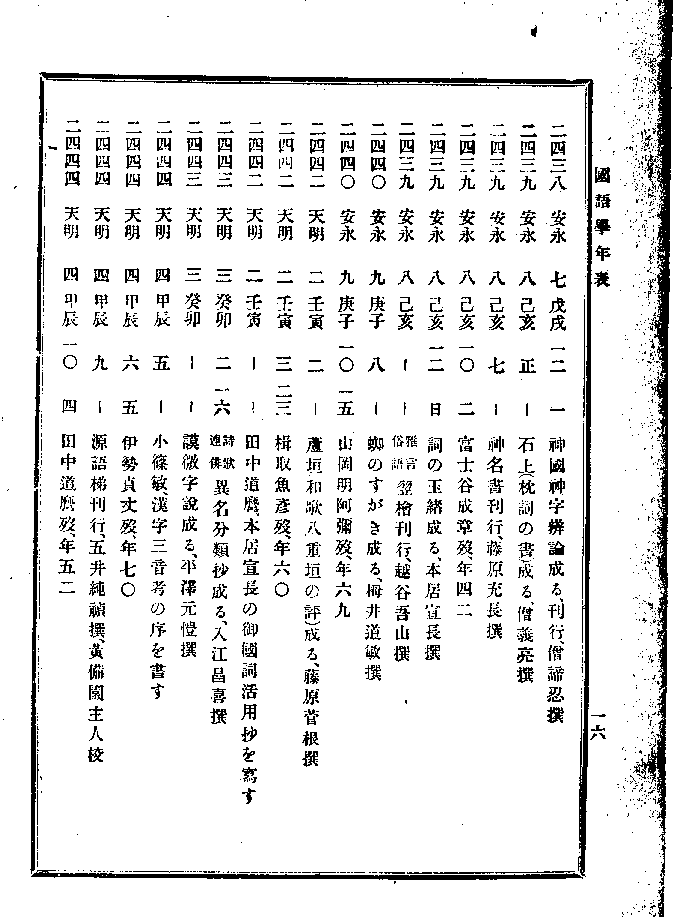 國語學年表
一六
二四三八 安永 七 戊戌 一二 一 神國神字辨論成る、刊行、僧諦忍撰
二四三九 安永 八 己亥 正 ー 石上(枕詞の書)成る、僧義亮撰
二四三九 安永 八 己亥 七 ー 神名書刊行、藤原充長撰
二四三九 安永 八 己亥 一〇 二 富士谷成章歿、年四二
二四三九 安永 八 己亥 一二 日 詞の玉緒成る、本居宣長撰
二四三九 安永 八 己亥 ー ー 雅言俗語翌檜刊行、越谷吾山撰
二四四〇 安永 九 庚子 八 ー 蜘のすがき成る、栂井道敏撰
二四四〇 安永 九 庚子 一〇 一五 山岡明阿彌歿、年六九
二四四二 天明 二 壬寅 二 ー 蘆垣(和歌八重垣の評)成る、藤原菅根撰
二四四二 天明 二 壬寅 三 二三 楫取魚彥歿、年六〇
二四四二 天明 二 壬寅 ー ー 田中道麿、本居宣長の御國詞活用抄を寫す
二四四三 天明 三 癸卯 二 一六 詩歌連俳異名分類抄成る、入江昌喜撰
二四四三 天明 三 癸卯 ー ー 謨微字說成る、平澤元愷撰
二四四四 天明 四 甲辰 五 ー 小篠敏漢字三音考の序を書す
二四四四 天明 四 甲辰 六 五 伊勢貞丈歿、年七〇
二四四四 天明 四 甲辰 九 ー 源語梯刊行、五井純禎撰、黃備園主人校
二四四四 天明 四 甲辰 一〇 四 田中道麿歿、年五二